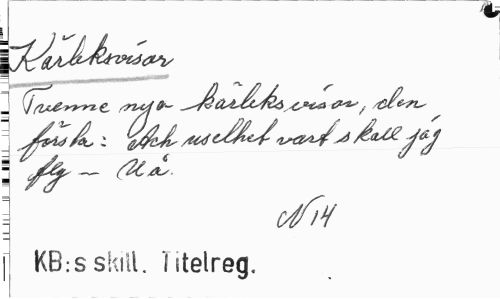 Kärleksvisor
Tvenne nya kärleksvisor, den
första: Ack uselhet vart skall jag
fly — U å.
N 14
KB:s skill. Titelreg.